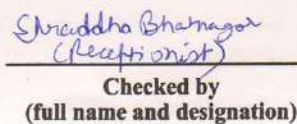 Shraddha Bhatnagar
(Receptionist)
Checked by
(full name and designation)